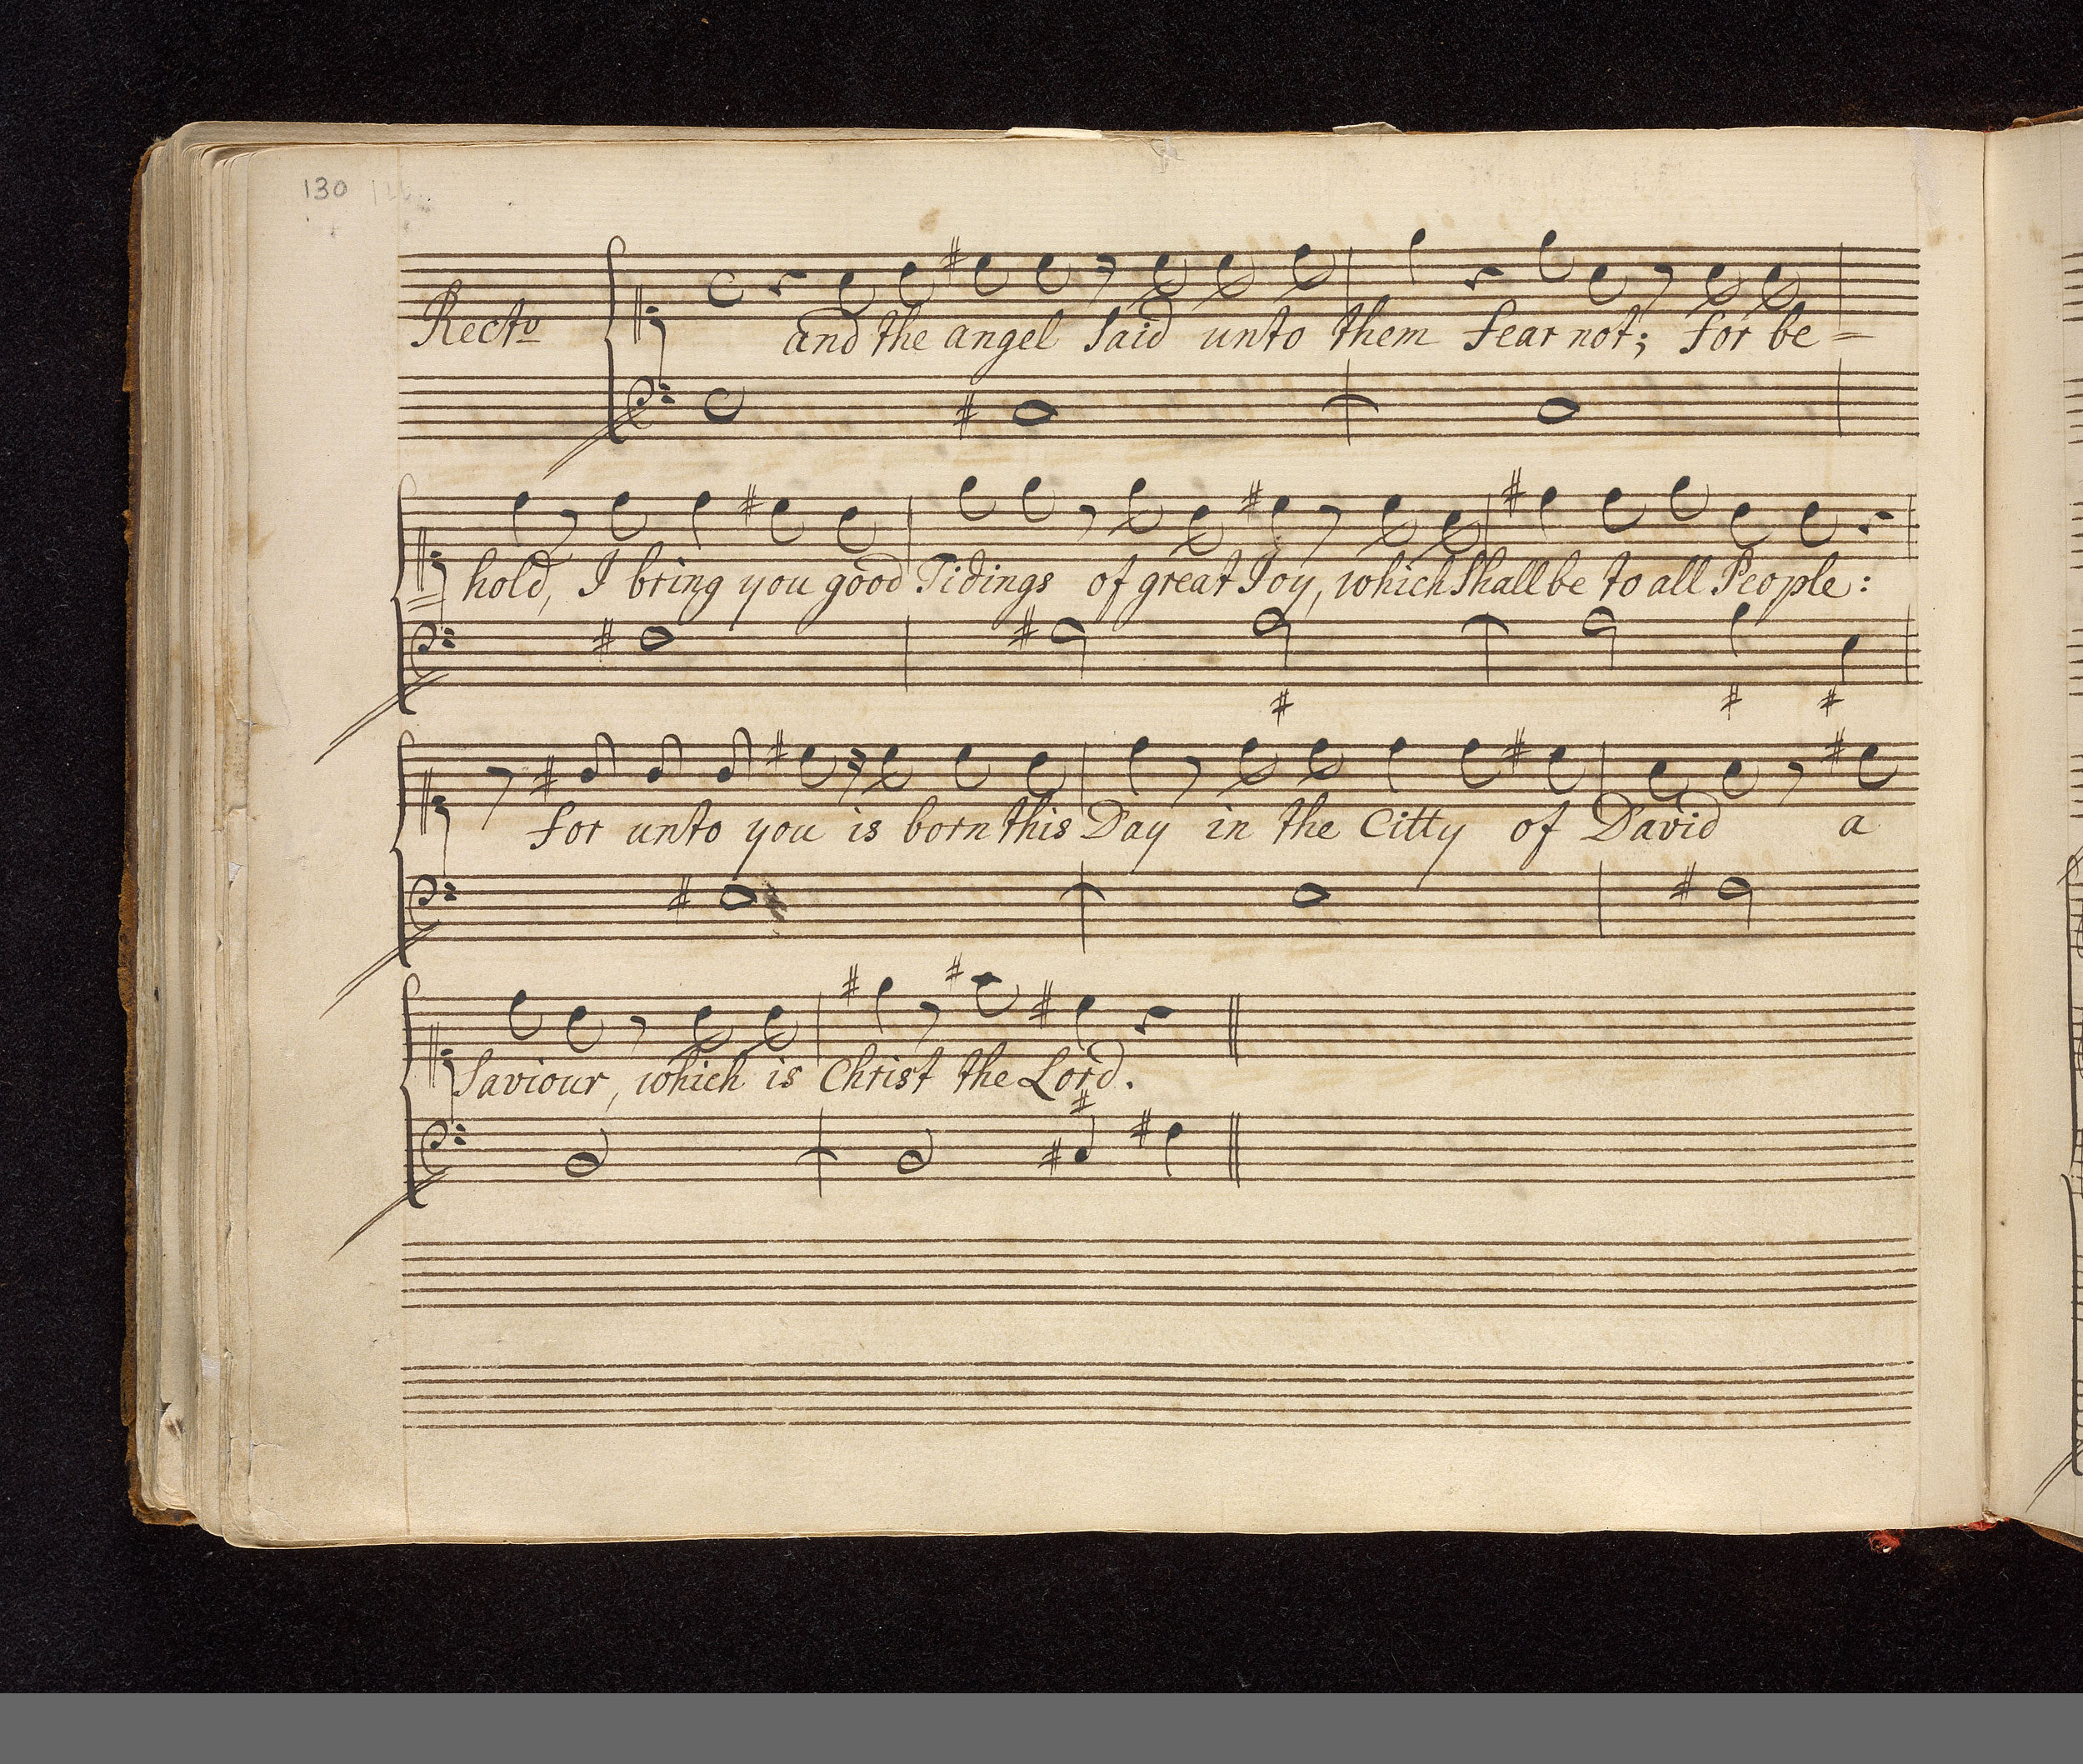 130
Recto
and the angel said unto them fear not; for be=
hold, I bring you good Tidings of great Joy, which shall be to all People:
for unto you is born this Day in the Citty of David a
Saviour, which is Christ the Lord.